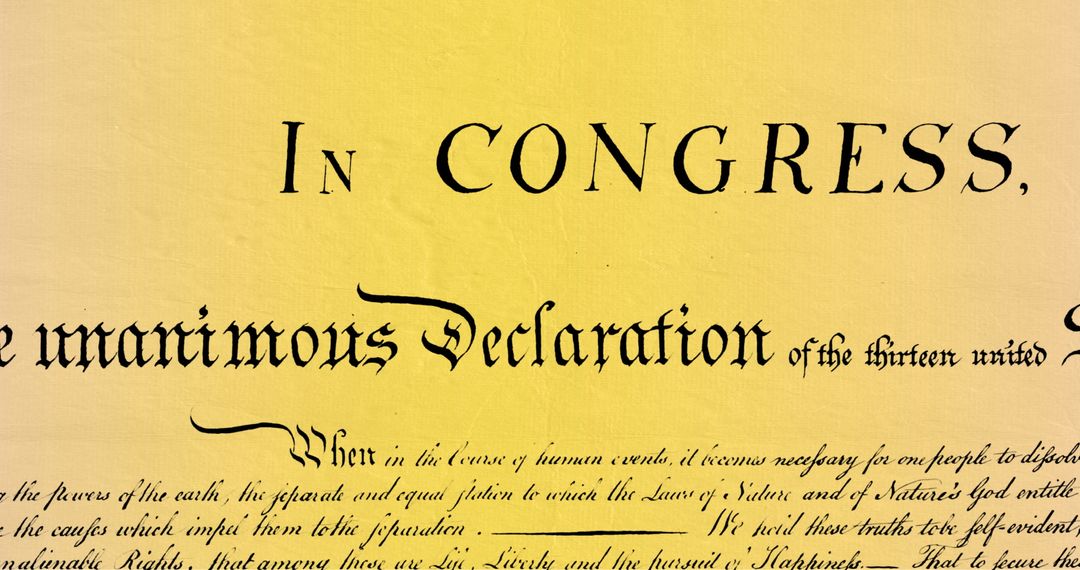 IN CONGRESS,
e unanimous Declaration of the thirteen united S
When in the Course of human events, it becomes neceſsary for one people to diſsolv
g the powers of the earth, the ſeparate and equal ſtation to which the Laws of Nature and of Nature's God entitle
e the cauſes which impel them to the ſeparation. ——— We hold these truths to be ſelf-evident,
nalienable Rights, that among these are Life, Liberty and the pursuit of Happineſs.— That to ſecure the